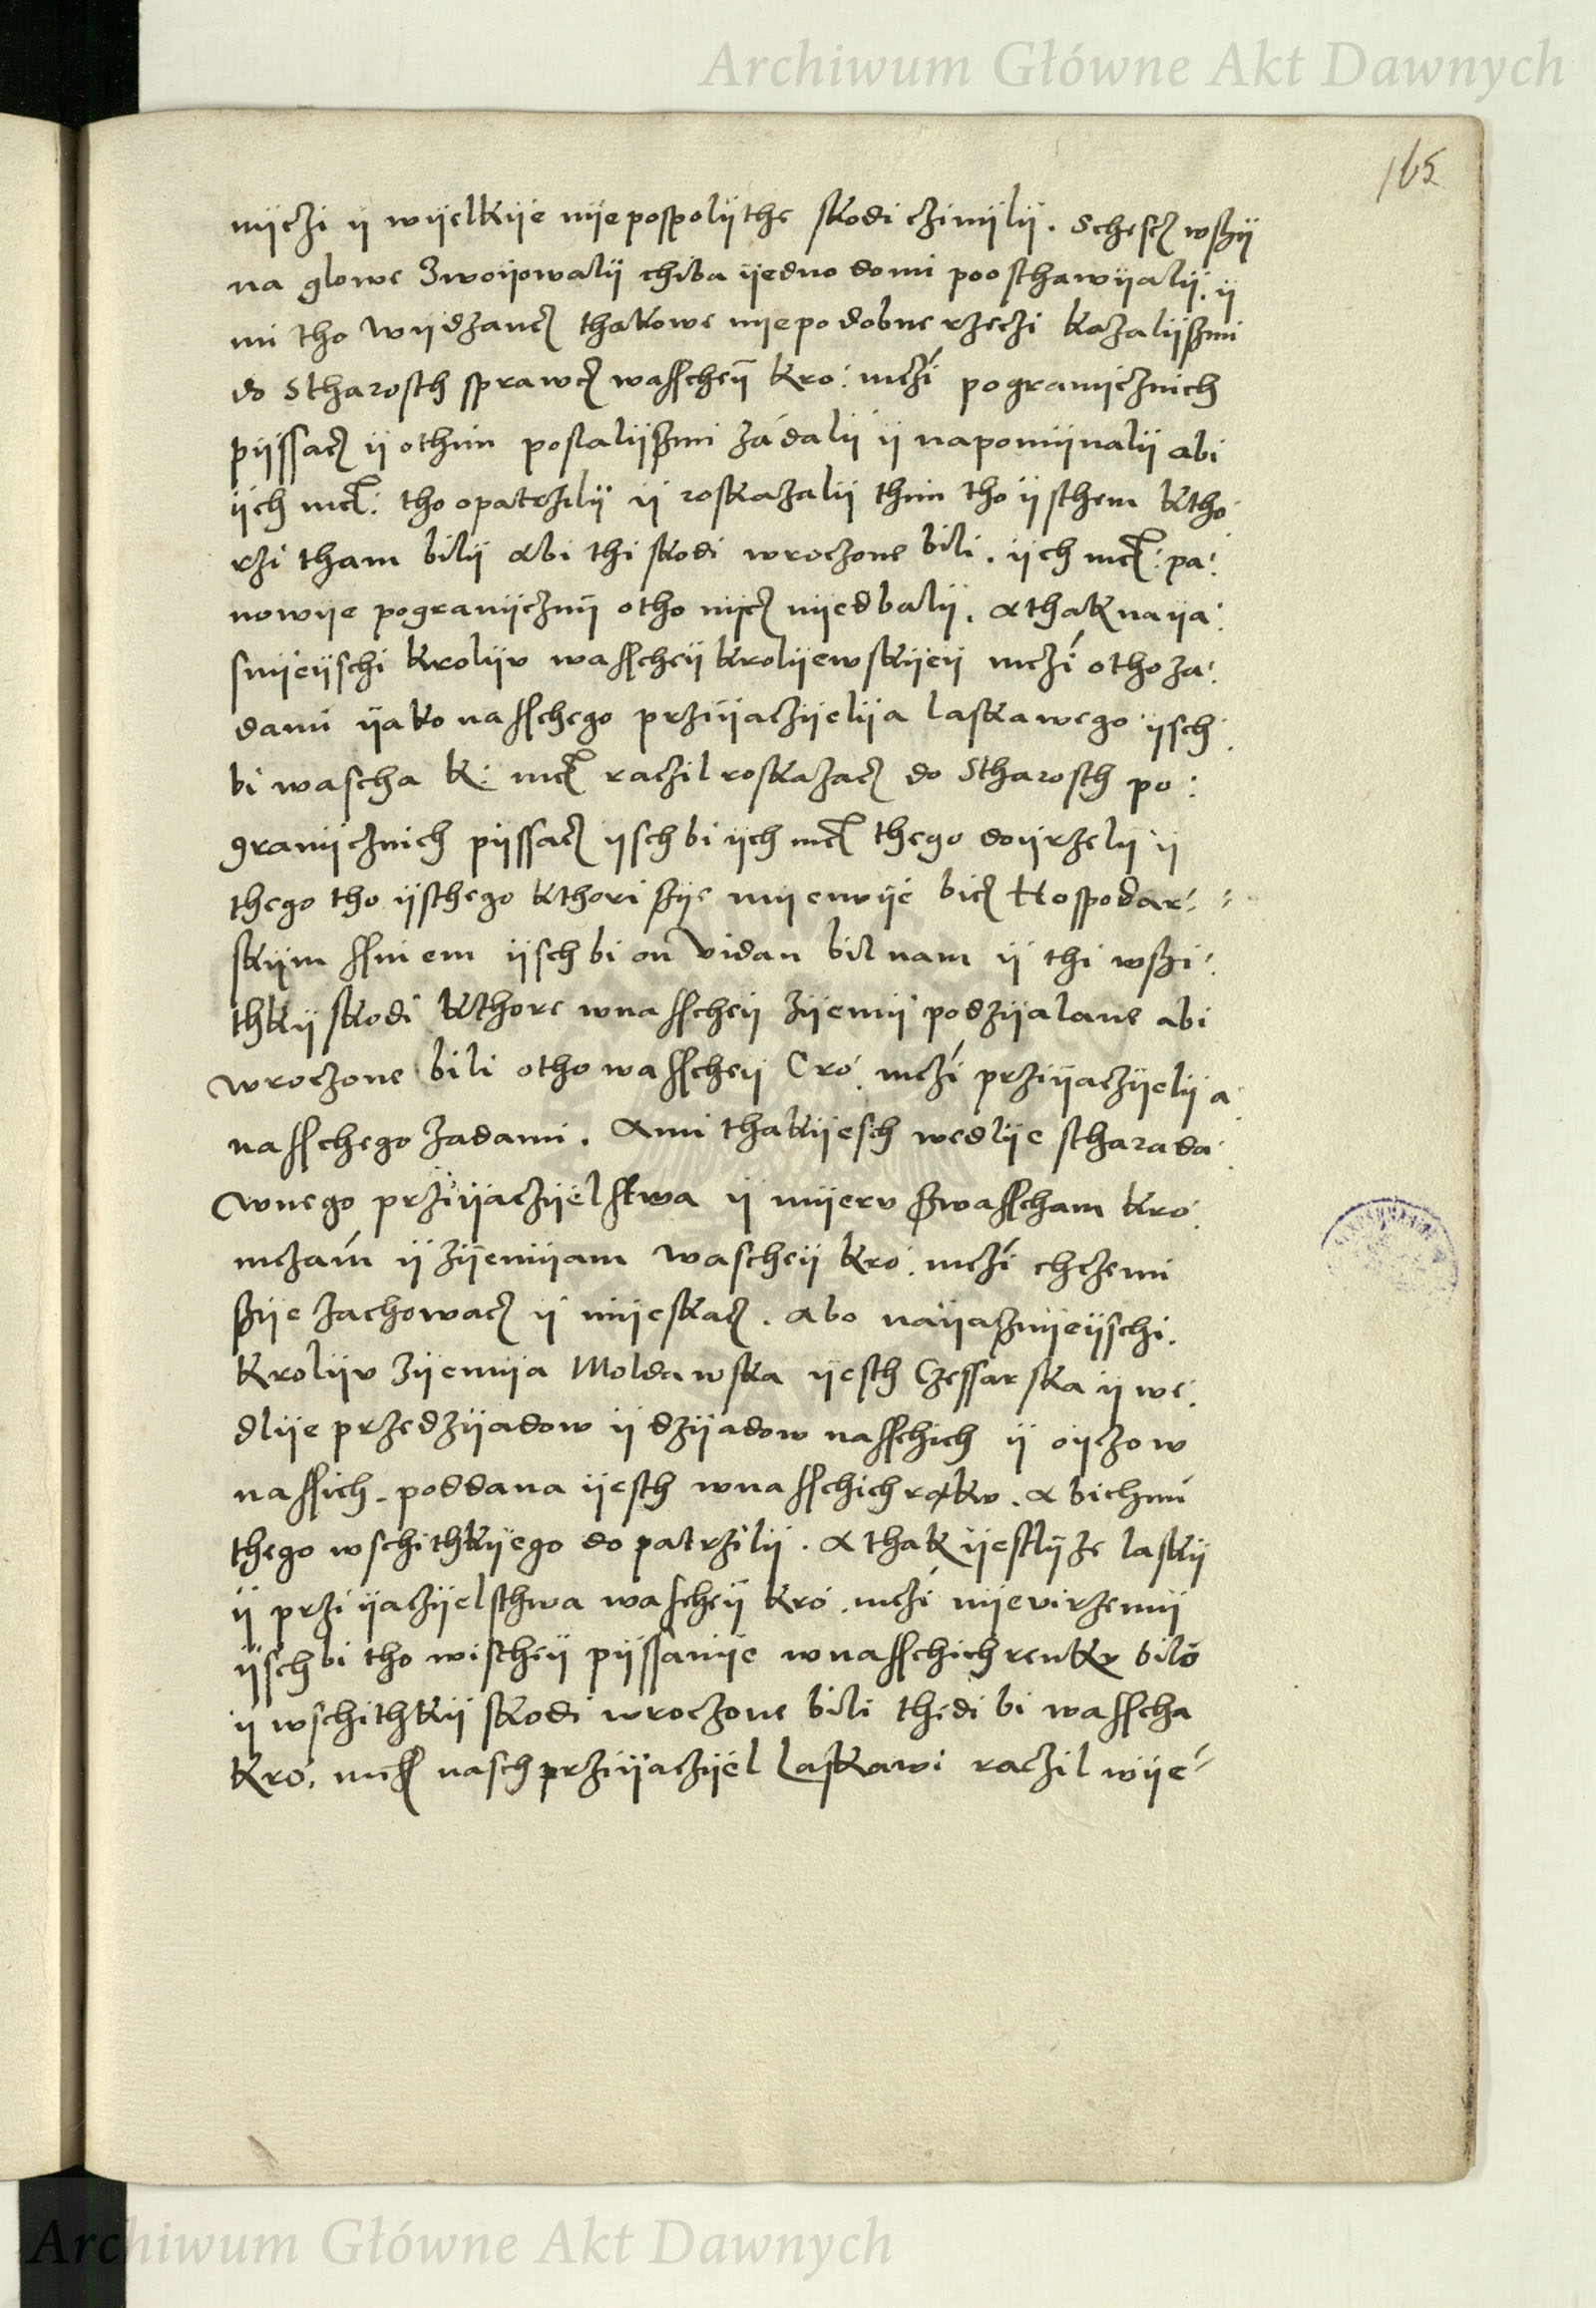 Archiwum Główne Akt Dawnych
165
nyczi y wyelkye nyepospolythe skodi czinyly. Schescz wszy
na glowe Zwoyowaly chiba yedno domi poosthawyaly. y
mi tho wydzancz thakowe nyepodobne rzeczi kazalyszmi
do Stharosth sprawcz wasschey Kro: mczi pogranycznich
pyssacz y othim poslalyszmi zadali y napomynaly abi
ych mcz: tho opatrzily y roskazaly thim tho ysthem ktho
rzi tham bily abi thi skodi wroczone bili. ych mcz: pa:
nowye pogranyczny otho nycz nyedbaly. a thak naya:
snyeyschi krolyv wasschey krolyewskyey mczi otho za:
dami yako nasschego przyyaczyelya laskawego ysch:
bi wascha K: mcz raczil roskazacz do Stharosth po:
granycznich pyssacz ysch bi ych mcz thego doyrzely y
thego tho ysthego kthori szye myenye bicz Hospodar:
skym ssinem ysch bi on vidan bil nam y thi wszi:
thky skodi kthore wnasschey zyemy podzyalane abi
wroczone bili otho wasschey Cro. mczi przyyaczyelya
nasschego zadami. A mi thakyesch wedlye stharada:
wnego przyyaczyelstwa y myerv szwasscham kro.
mczam y zyemyam waschey kro. mczi chczemi
szye zachowacz y myeskacz. Abo nayasznyeyschi.
Krolyv zyemya Moldawska yesth Czessarska y we:
dlye przedzyadow y dzyadow nasschich y oyczow
nassich. poddana yesth wnasschich rakv. a bichmi
thego wschithkyego dopatrzily. A thak yeslyze lasky
y przyyaczyelsthwa waschey kro. mczi nyevirzemy
ysch bi tho wischey pyssanye wnasschich renkv bilo
y wschithky skodi wroczone bili thedi bi wasscha
Kro. mcz nasch przyyaczyel Laskawi raczil wye
Archiwum Główne Akt Dawnych